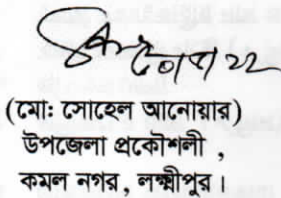 (মোঃ সোহেল আনোয়ার)
উপজেলা প্রকৌশলী ,
কমল নগর , লক্ষ্মীপুর ।